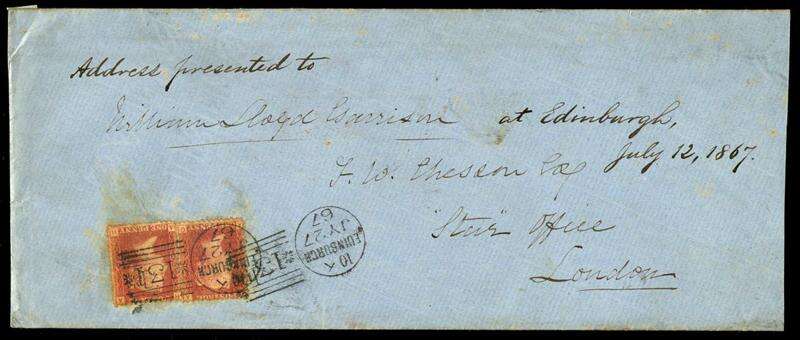 Address presented to
William Lloyd Garrison at Edinburgh,
July 12, 1867.
F. W. Chesson Esq
"Star" Office
London
ONE PENNY
131
EDINBURGH
JY 27
67
131
10 A
EDINBURGH
JY 27
67